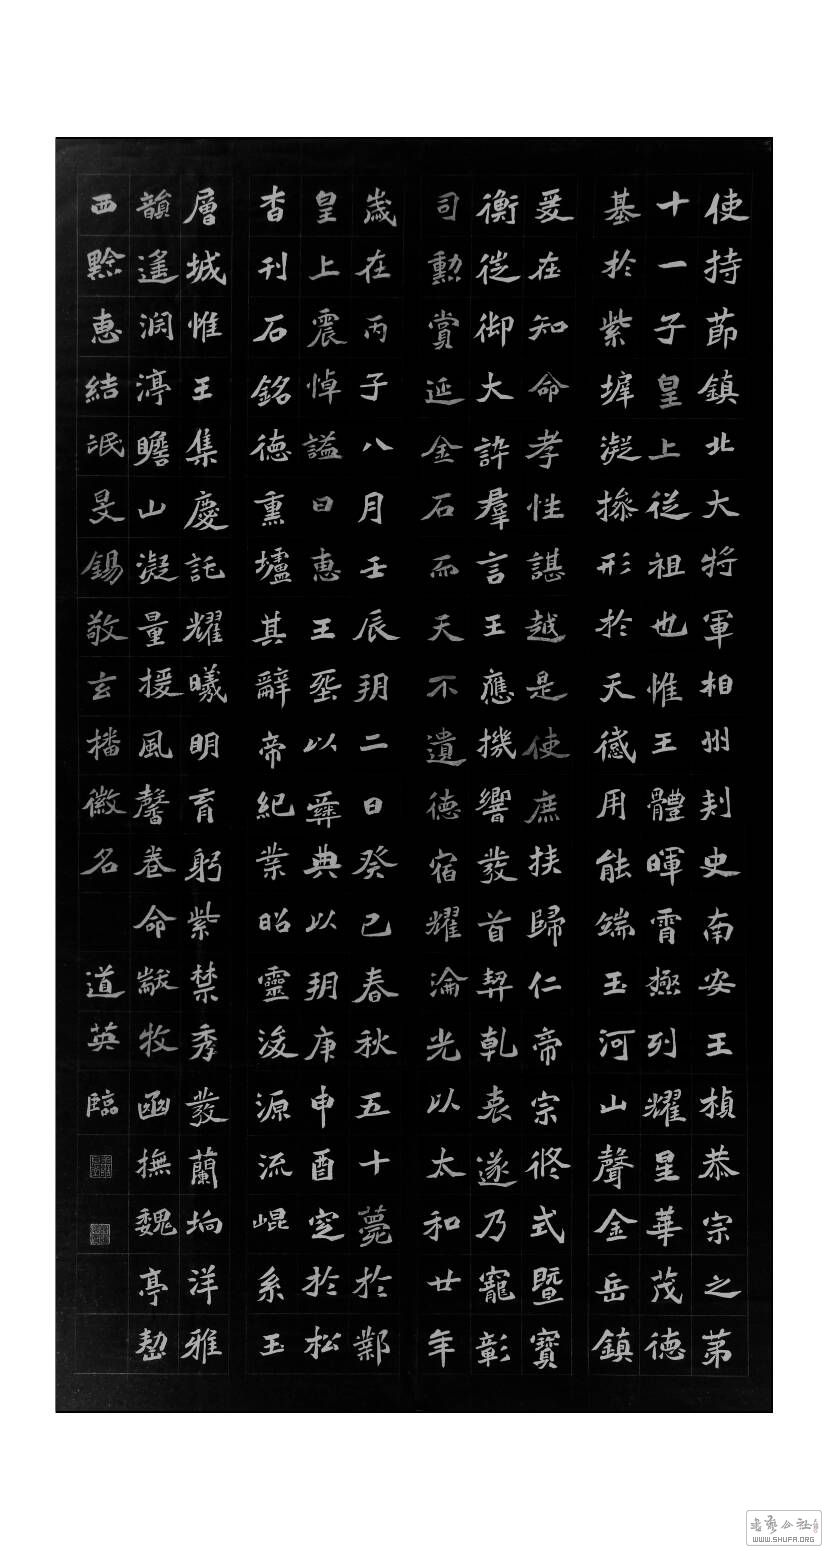 使持節鎮北大將軍相州刾史南安王楨恭宗之苐
十一子皇上從祖也惟王體暉霄極列耀星華茂德
基於紫墀凝操形於天感用能端玉河山聲金岳鎮
爰在知命孝性諶越是使庶族歸仁帝宗攸式暨寶
衡徙御大訞羣言王應機響發首契乹衷遂乃寵彰
司勲賞延金石而天不遺德宿耀淪光以太和廿年
歲在丙子八月壬辰玥二日癸巳春秋五十薨於鄴
皇上震悼謚曰惠王塟以彝典以玥庚申酉窆於松
杳刊石銘德熏壚其辭帝紀業昭靈浚源流崐系玉
層城惟王集慶託耀曦明育躬紫禁秀發蘭坰洋雅
韻遙澗渟瞻山凝量援風馨卷命黻牧函撫魏亭劼
西黔惠結泯旻錫敬玄播徽名 道英臨
WWW.SHUFA.ORG